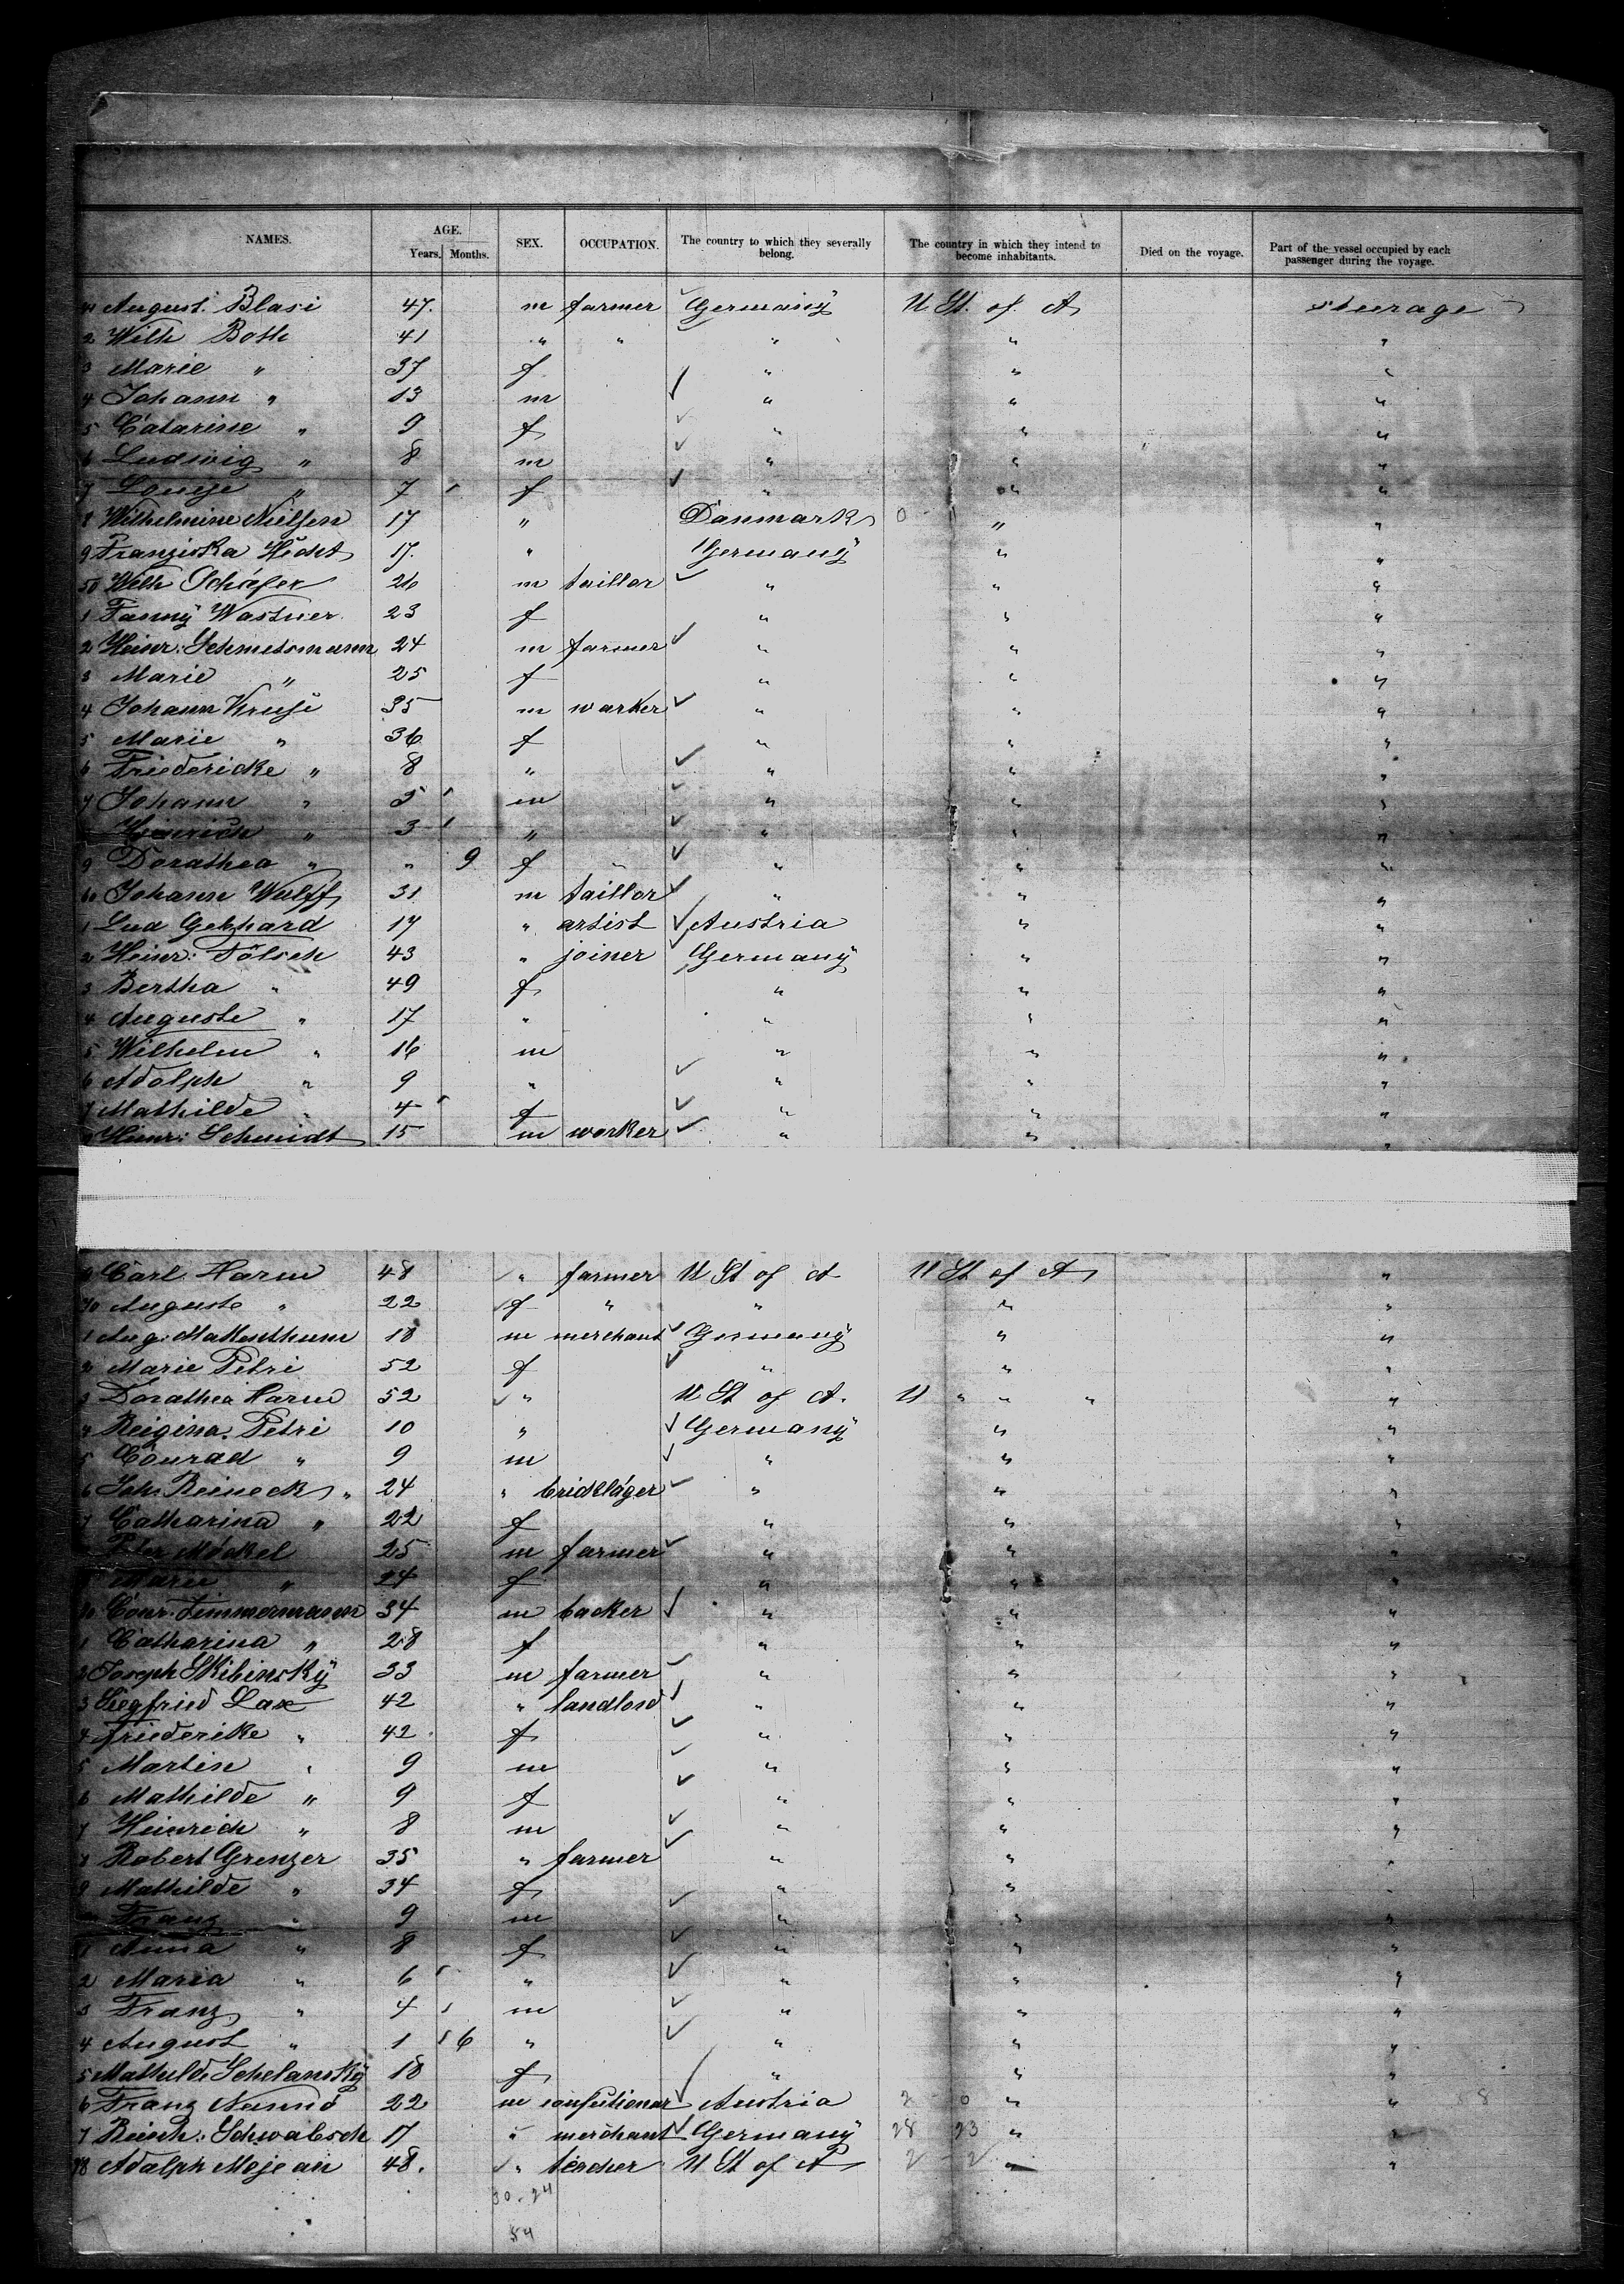 NAMES. AGE. Years. Months. SEX. OCCUPATION. The country to which they severally belong. The country in which they intend to become inhabitants. Died on the voyage. Part of the vessel occupied by each passenger during the voyage.
August Blasi 47. m farmer Germany U St. of A steerage
2 Wilh Both 41 " " " " "
3 Marie " 37 f " " "
4 Johann " 13 m " " "
5 Catarine " 9 f " " "
6 Ludwig " 8 m " " "
7 Louise " 7 f " " "
8 Wilhelmine Nielsen 17 " Danmark 0 " "
9 Franziska Hecht 17. " Germany " "
50 Wilh Schäfer 26 m taillor " " "
1 Fanny Wastner 23 f " " "
2 Heinr: Schmetsmann 24 m farmer " " "
3 Marie " 25 f " " "
4 Johann Kruse 35 m warker " " "
5 Marie " 36 f " " "
6 Friedericke " 8 " " " "
7 Johann " 5 m " " "
Heinrich " 3 " " " "
9 Dorathea " " 9 f " " " "
60 Johann Wulff 31 m taillor " " "
1 Lud Gebhard 17 " artist Austria " "
2 Heinr: Tölsch 43 " joiner Germany " "
3 Bertha " 49 f " " "
4 Auguste " 17 " " " "
5 Wilhelm " 16 m " " "
6 Adolph " 9 " " " "
7 Mathilde " 4 f " " "
Heinr: Schmidt 15 m worker " " "
Carl Harm 48 " farmer U St of A U St of A "
70 Auguste " 22 f " " " "
1 Aug. 18 m merchant Germany " "
2 Marie Petri 52 f " " "
3 Dorathea Harm 52 " U St of A. U " " " "
4 Reigina Petri 10 " Germany " "
5 Conrad " 9 m " " "
6 Joh. Reineck " 24 " " " "
7 Catharina " 22 f " " "
Peter Möckel 25 m farmer " " "
Marie " 24 f " " "
80 Conr. Zimmermann 34 m backer " " "
1 Catharina " 28 f " " "
2 Joseph Skibinsky 33 m farmer " " "
3 Siegfried Lax 42 " landlord " " "
4 Friederike " 42 f " " "
5 Martin " 9 m " " "
6 Mathilde " 9 f " " "
7 Heinrich " 8 m " " "
8 Robert Grenzer 35 " farmer " " "
9 Mathilde " 34 f " " "
Franz " 9 m " " "
1 Anna " 8 f " " "
2 Maria " 6 " " " "
3 Franz " 4 m " " "
4 August " 1 6 " " " "
5 Mathilde Schelansky 18 f " " "
6 Franz 22 m Austria 2 0 " "
7 Schwabsch 17 " merchant Germany 28 23 " "
98 Adalph Mejean 48. " U St of A 2 2 " "
30. 24
54